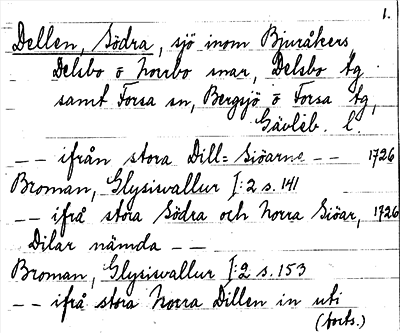 1.
Dellen, Södra, sjö inom Bjuråkers
Delsbo o Norrbo snar, Delsbo tg
samt Forsa sn, Bergsjö o Forsa tg,
Gävleb. l.
-- ifrån stora Dill= Siöarne -- 1726
Broman, Glysisvallur I:2 s. 141
-- ifrå stora Södra och Norra Siöar, 1726
Dilar nämda --
Broman, Glysisvallur I:2 s. 153
-- ifrå stora Norra Dillen in uti
(forts.)